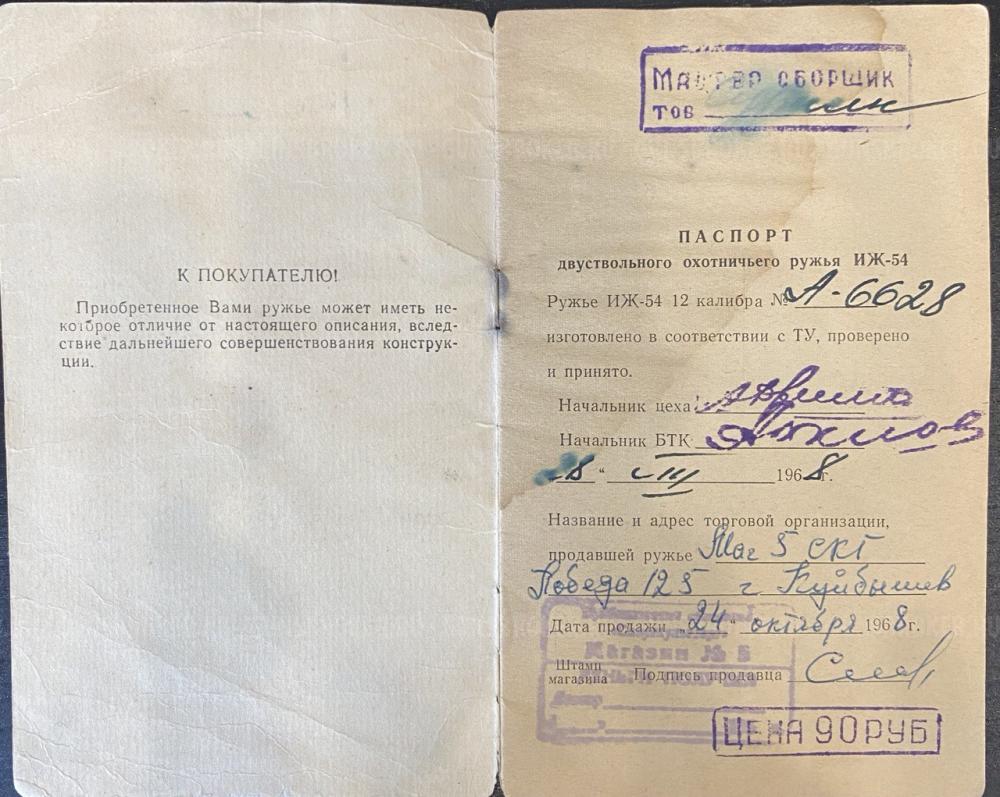 К ПОКУПАТЕЛЮ!
Приобретенное Вами ружье может иметь не-
которое отличие от настоящего описания, вслед-
ствие дальнейшего совершенствования конструк-
ции.
МАСТЕР СБОРЩИК
ТОВ
ПАСПОРТ
двуствольного охотничьего ружья ИЖ-54
Ружье ИЖ-54 12 калибра № А-6628
изготовлено в соответствии с ТУ, проверено
и принято.
Начальник цеха
Начальник БТК
" III 1968г.
Название и адрес торговой организации,
продавшей ружье Маг 5 СКТ
Победа 125 г. Куйбышев
Дата продажи „24" октября 1968г.
Магазин № 5
Штамп
магазина Подпись продавца
ЦЕНА 90 РУБ